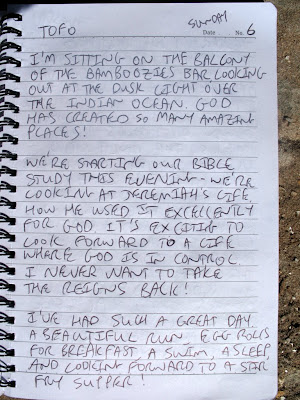 TOFO
SUNDAY
Date No. 6
I'M SITTING ON THE BALCONY
OF THE BAMBOOZIES BAR LOOKING
OUT AT THE DUSK LIGHT OVER
THE INDIAN OCEAN. GOD
HAS CREATED SO MANY AMAZING
PLACES!
WE'RE STARTING OUR BIBLE
STUDY THIS EVENING - WE'RE
LOOKING AT JEREMIAH'S LIFE.
HOW HE USED IT EXCELLENTLY
FOR GOD. IT'S EXCITING TO
LOOK FORWARD TO A LIFE
WHERE GOD IS IN CONTROL.
I NEVER WANT TO TAKE
THE REIGNS BACK!
I'VE HAD SUCH A GREAT DAY.
A BEAUTIFUL RUN, EGG ROLLS
FOR BREAKFAST, A SWIM, A SLEEP,
AND LOOKING FORWARD TO A STIR
FRY SUPPER!